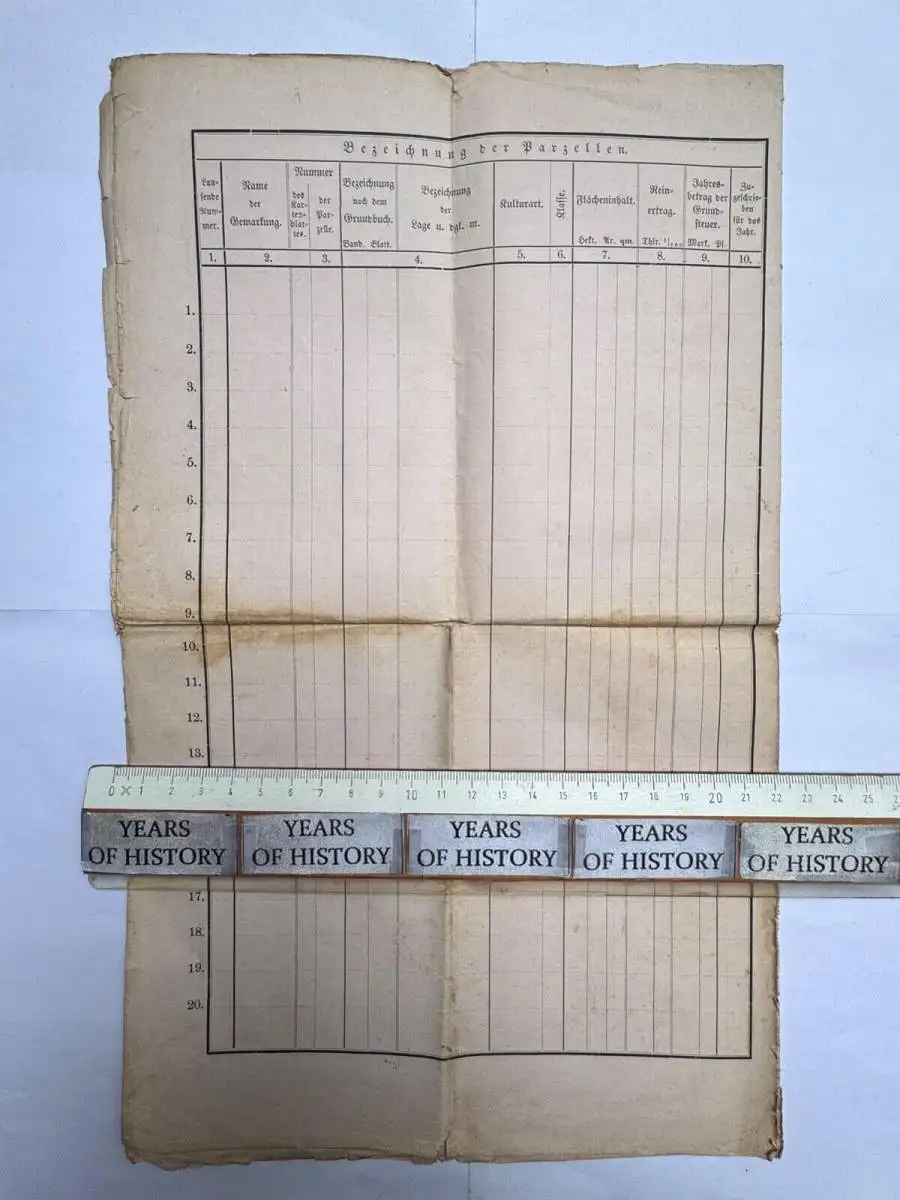 Bezeichnung der Parzellen.
Lau-
fende
Num-
mer.
Name
der
Gemarkung.
Nummer
des
Kar-
ten-
blat-
tes.
der
Par-
zelle.
Bezeichnung
nach dem
Grundbuch.
Band. Blatt.
Bezeichnung
der
Lage u. dgl. m.
Kulturart.
Klasse.
Flächeninhalt.
Hekt. Ar. qm.
Rein-
ertrag.
Thlr. 1/100
Jahres-
betrag der
Grund-
steuer.
Mark. Pf.
Zu-
geschrie-
ben
für das
Jahr.
1. 2. 3. 4. 5. 6. 7. 8. 9. 10.
1.
2.
3.
4.
5.
6.
7.
8.
9.
10.
11.
12.
13.
0 1 2 3 4 5 6 7 8 9 10 11 12 13 14 15 16 17 18 19 20 21 22 23 24 25
YEARS OF HISTORY
YEARS OF HISTORY
YEARS OF HISTORY
YEARS OF HISTORY
YEARS OF HISTORY
17.
18.
19.
20.